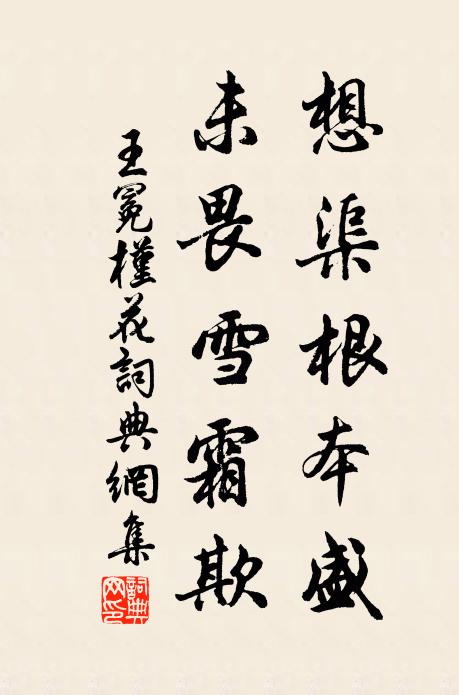 想渠根本盛
未畏雪霜欺
王冕槿花詞典網集
詞典
网印